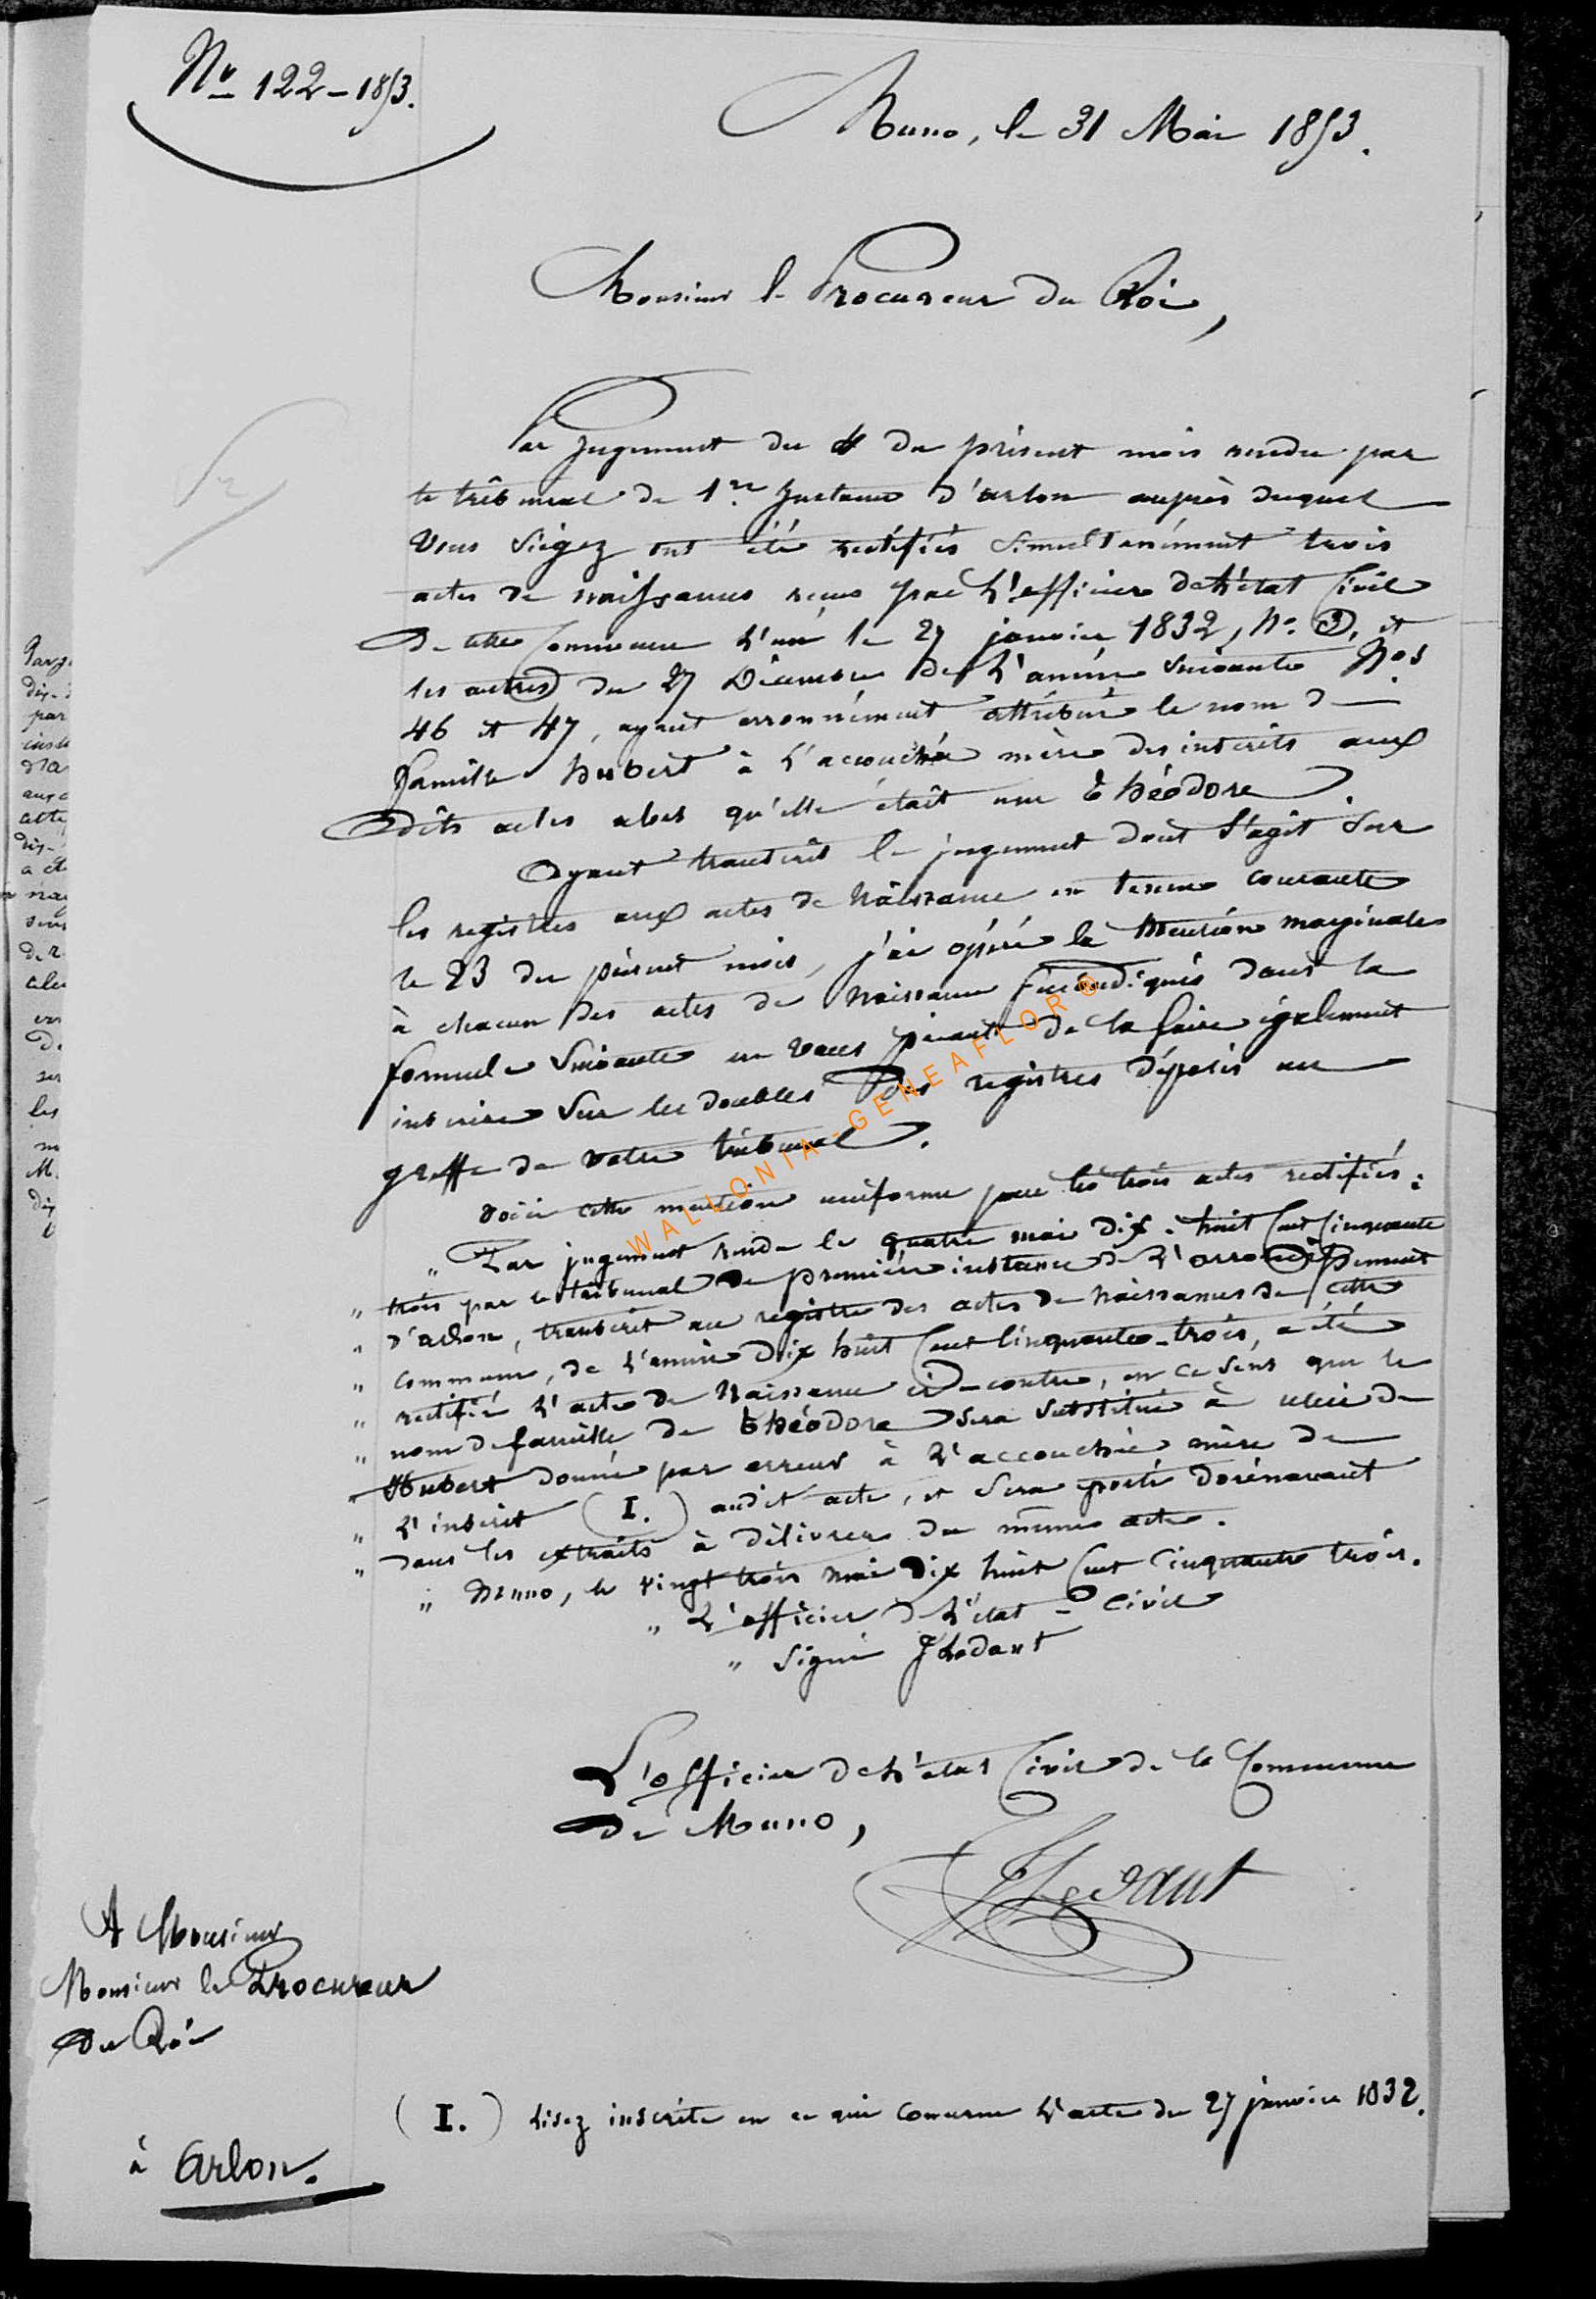 No 122 - 1853.
Muno, le 31 Mai 1853.
Monsieur le Procureur du Roi,
Par Jugement du 4 du présent mois rendu par
le tribunal de 1re Instance d'arlon auprès duquel
Vous Siégez ont été rectifiés Simultanément trois
actes de naissances reçus par L'officier de l'état Civil
De cette Commune L'un le 27 janvier 1832, No. 3, et
les autres du 27 Décembre de L'année Suivante Nos
46 et 47, ayant erronnément attribué le nom de
famille hubert à L'accouchée mère des inscrits aux
dits actes alors qu'elle était une théodore.
Ayant transcrit le jugement dont S'agit Sur
les registres aux actes de Naissance en tenue courante
le 23 du présent mois, j'ai opéré la Mention marginale
à chacun des actes de Naissance Susindiqués dans la
formule Suivante en vous priant de la faire également
inscrire Sur les doubles des registres déposés au
greffe de votre tribunal.
Voici cette mention uniforme pour les trois actes rectifiés:
" Par jugement rendu le quatre mai dix-huit Cent Cinquante
" trois par le tribunal de première instance de L'arrondissement
" d'arlon, transcrit au registre des actes de Naissances de cette
" commune, de L'année dix huit Cent Cinquante-trois, a été
" rectifié L'acte de Naissance ci-contre, en ce Sens que le
" nom de famille de théodore Sera Substitué à celui de
" Hubert donné par erreur à L'accouchée mère de
" L'inscrit (I.) audit acte, et Sera porté dorénavant
" dans les extraits à délivrer du même acte.
" Muno, le vingt trois mai dix huit Cent Cinquante trois.
" L'officier de L'état-Civil
" Signé Jhodant
L'officier de L'état Civil de la Commune
de Muno,
A Monsieur
Monsieur le Procureur
du Roi
à Arlon.
(I.) Lisez inscrite en ce qui concerne L'acte du 27 janvier 1832.
WALLONIA-GENEAFLOR®